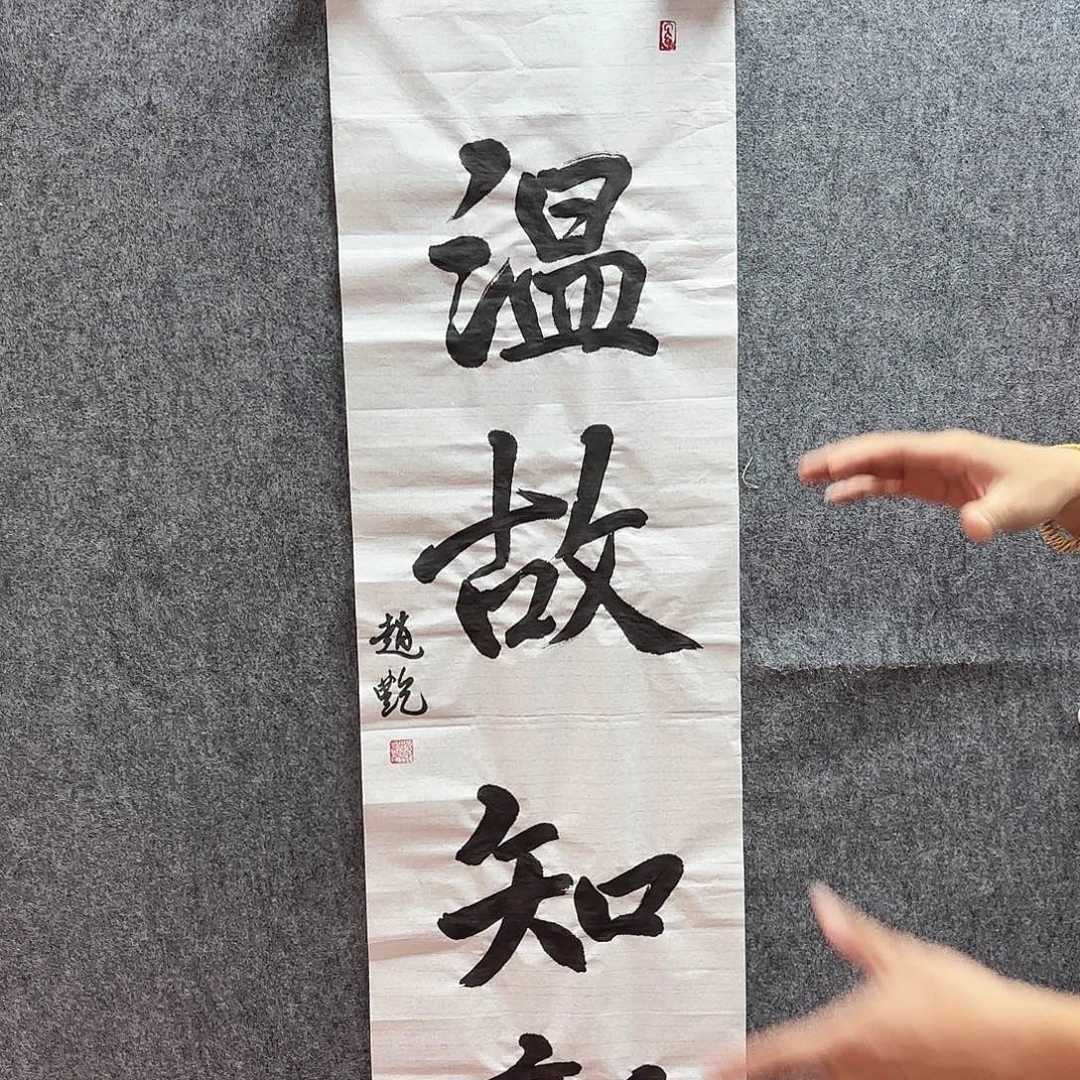 温故知
趙艷